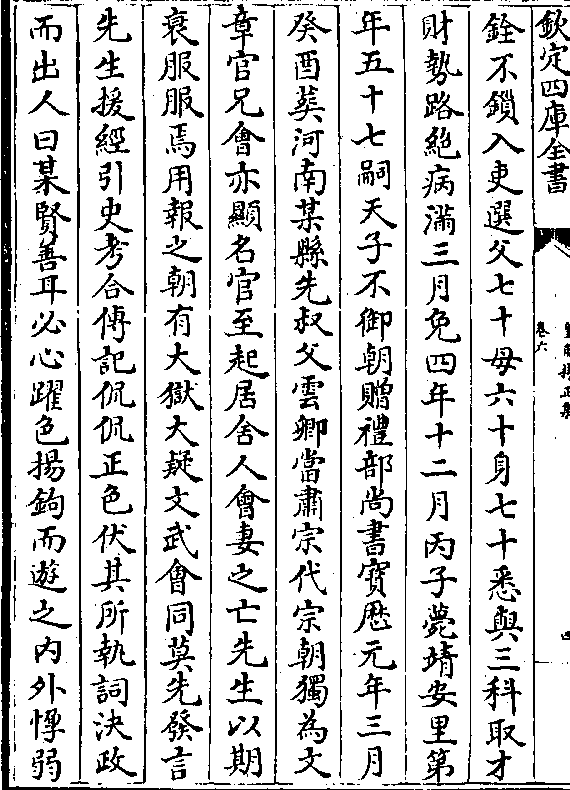 欽定四庫全書
卷六
銓不鎖入吏選父七十母六十身七十悉與三科取才
財勢路絕病滿三月免四年十二月丙子薨靖安里第
年五十七嗣天子不御朝贈禮部尚書寶厯元年三月
癸酉葬河南某縣先叔父雲卿當肅宗代宗朝獨為文
章官兄會亦顯名官至起居舍人會妻之亡先生以期
衰服服焉用報之朝有大獄大疑文武會同莫先發言
先生援經引史考合傳記侃侃正色伏其所執詞決政
而出人曰某賢善耳必心躍色揚鉤而遊之内外惸弱